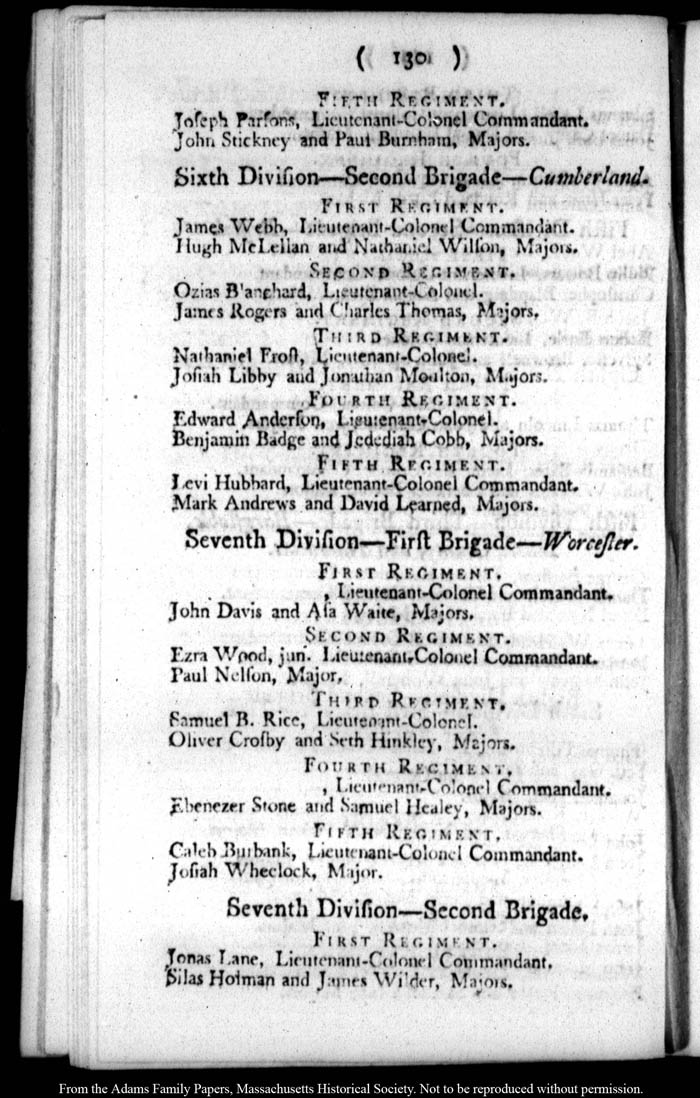 ( 130 )
FIFTH REGIMENT.
Joſeph Parſons, Lieutenant-Colonel Commandant.
John Stickney and Paul Burnham, Majors.
Sixth Diviſion—Second Brigade—Cumberland.
FIRST REGIMENT.
James Webb, Lieutenant-Colonel Commandant.
Hugh McLellan and Nathaniel Wilſon, Majors.
SECOND REGIMENT.
Ozias Blanchard, Lieutenant-Colonel.
James Rogers and Charles Thomas, Majors.
THIRD REGIMENT.
Nathaniel Froſt, Lieutenant-Colonel.
Joſiah Libby and Jonathan Moulton, Majors.
FOURTH REGIMENT.
Edward Anderſon, Lieutenant-Colonel.
Benjamin Badge and Jedediah Cobb, Majors.
FIFTH REGIMENT.
Levi Hubbard, Lieutenant-Colonel Commandant.
Mark Andrews and David Learned, Majors.
Seventh Diviſion—Firſt Brigade—Worceſter.
FIRST REGIMENT.
, Lieutenant-Colonel Commandant.
John Davis and Aſa Waite, Majors.
SECOND REGIMENT.
Ezra Wood, jun. Lieutenant-Colonel Commandant.
Paul Nelſon, Major.
THIRD REGIMENT.
Samuel B. Rice, Lieutenant-Colonel.
Oliver Croſby and Seth Hinkley, Majors.
FOURTH REGIMENT.
, Lieutenant-Colonel Commandant.
Ebenezer Stone and Samuel Healey, Majors.
FIFTH REGIMENT.
Caleb Burbank, Lieutenant-Colonel Commandant.
Joſiah Wheelock, Major.
Seventh Diviſion—Second Brigade.
FIRST REGIMENT.
Jonas Lane, Lieutenant-Colonel Commandant.
Silas Holman and James Wilder, Majors.
From the Adams Family Papers, Massachusetts Historical Society. Not to be reproduced without permission.